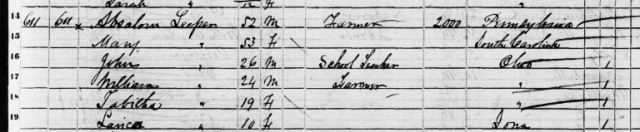 Sarah " 12 F
14 611 611 Absalom Leeper 52 M Farmer 2000 Pennsylvania
15 Mary " 53 F South Carolina
16 John " 26 M School Teacher Ohio 1
17 William " 24 M Farmer " 1
18 Tabitha " 19 F " 1
19 " 10 F Iowa 1